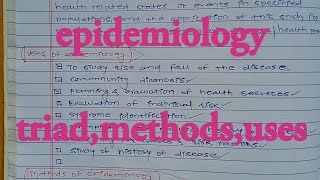 health related states or events in specified
populations, and the application of this study to
health
epidemiology
Uses of epidemiology
To study rise and fall of the disease
community diagnosis
planning & evaluation of health services
Evaluation of individual risk
Syndrome identification
triad,methods,uses
risk factors
study of history of disease
Methods of epidemiology